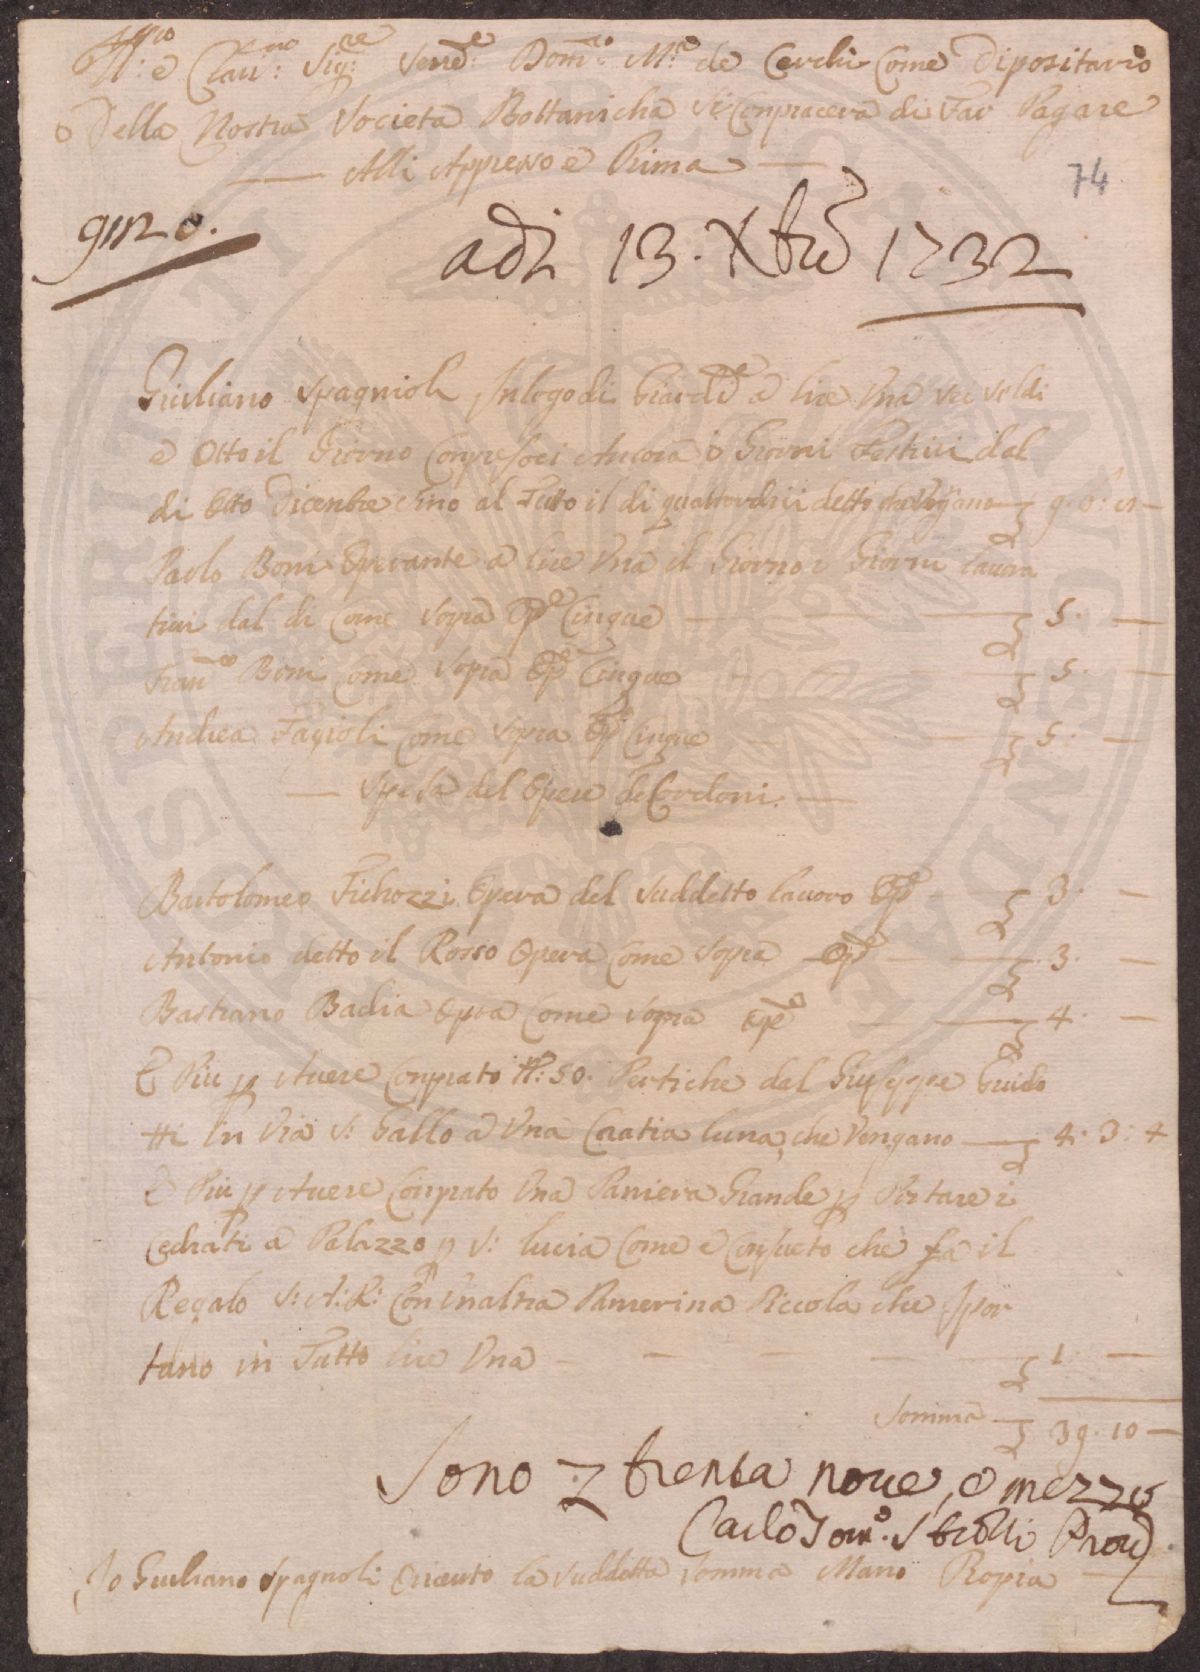 Ill:mo e Clari:mo Sig:re Vened:e Dom:co M:a de Cerchi Come Dipositario
Della Nostra Societa Bottanicha Si Conpiacera di Far Pagare
Alli Appresso e Prima
74
adi 13. Xbre 1732
Giuliano Spagnioli Inlogo di Giard:e a lire Una Sei Soldi
e Otto il Giorno Conpresoci Ancora i Giorni Festivi dal
di Otto Dicenbre Sino al Tutto il di quattordici detto che Vengano 9.
Paolo Boni Operante a lire Una il Giorno i Giorni lavora
tivi dal di Come Sopra Op:e Cinque 5. —
Fran:co Boni Come Sopra Op:e Cinque 5. —
Andrea Fagioli Come Sopra Op:e Cinque 5. —
Spesa del Opere
Bartolomeo Fichozzi Opera del Suddetto lavoro Op:e 3. —
Antonio detto il Rosso Opera Come Sopra Op:e 3. —
Bastiano Badia Opera Come Sopra Op:e 4. —
E Piu p Avere Conprato N:o 50. Pertiche dal Giuseppe Guido
tti In Via S: Gallo a Una Cratia luna, che Vengano 4: 3: 4
E Piu p Avere Conprato Una Paniera Grande p Portare i
Cedrati a Palazzo p S: lucia Come e Consueto che fa il
Regalo S: A: R: Con Unaltra Panierina Piccola che Ipor
tano in Tutto lire Una 1. —
Somma 39. 10 —
Sono trenta noue, e mezzo
Carlo Tom:o Strozzi Prou
Io Giuliano Spagnoli O riceuto la Suddetta Somma Mano Propia